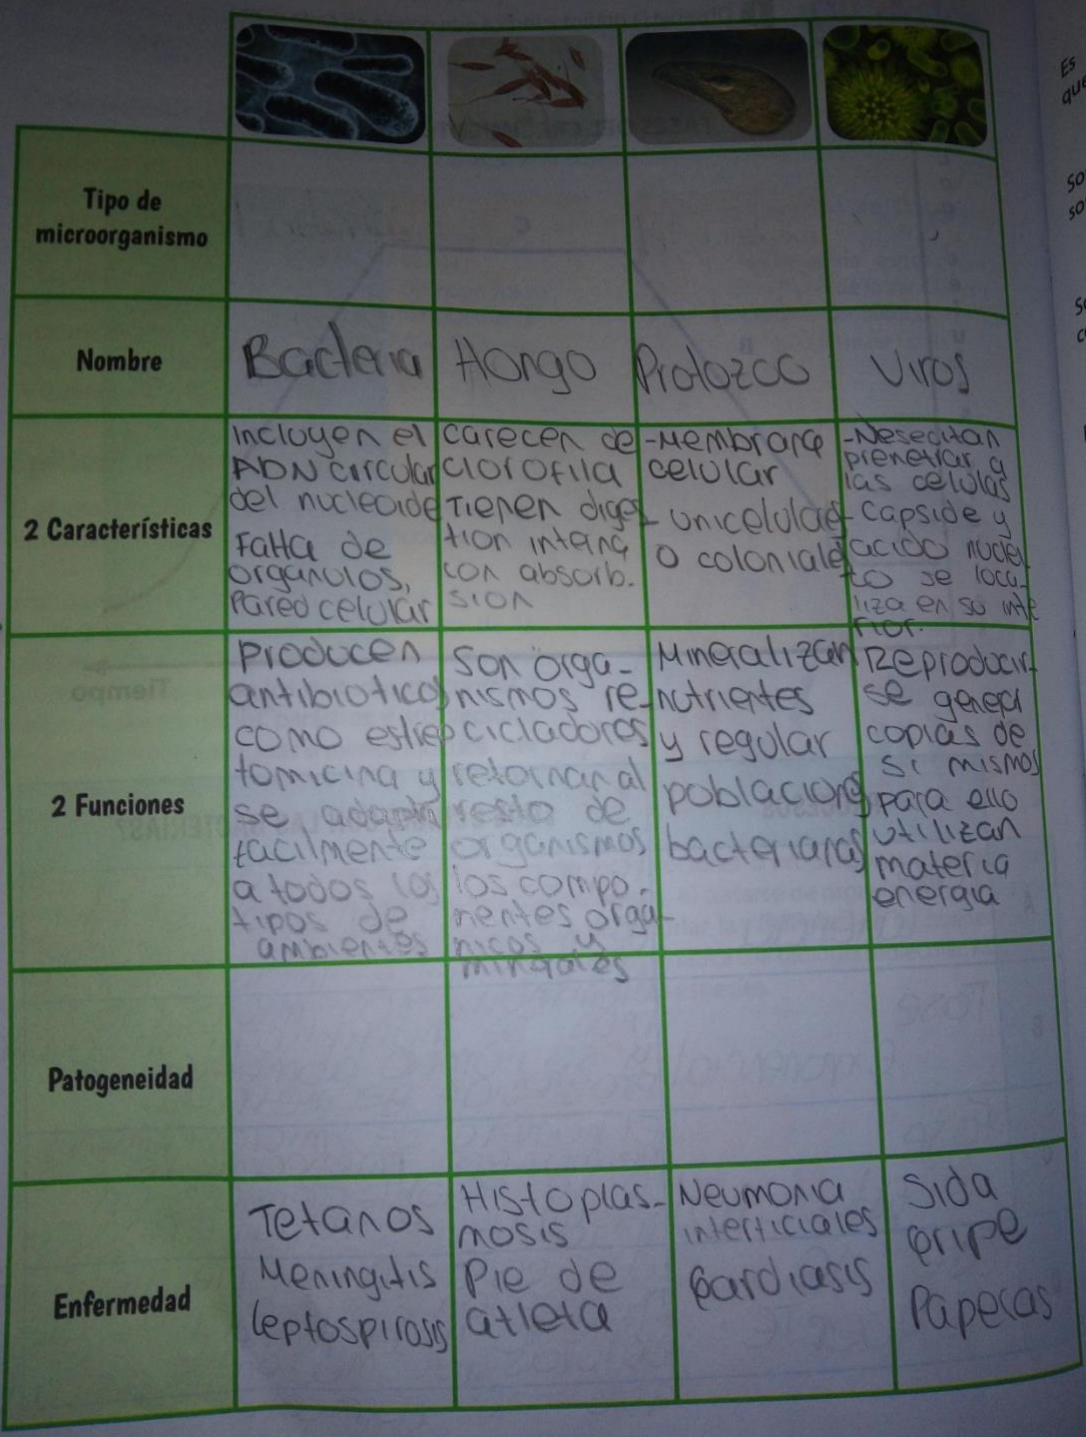 Tipo de
microorganismo
Nombre
Bacteria
Hongo
Protozoo
Viros
2 Características
Incluyen el
ADN circular
del nucleoide
Falta de
organulos,
Pared celular
carecen de
clorofila
Tienen diges
tion interna
con absorb.
sion
-Membrana
celular
- unicelulares
o coloniales
-Nesecitan
prenetrar a
las celulas
- capside y
acido nuclei
co se loca_
liza en su inte
rior.
2 Funciones
Producen
antibioticos
como estrep
tomicina y
se adaptan
facilmente
a todos los
tipos de
ambientes
Son orga-
nismos re-
cicladores
retornan al
resto de
organismos
los compo-
nentes orga-
nicos y
minerales
Mineralizan
nutrientes
y regular
poblaciones
bacterianas
Reproducir
se generar
copias de
si mismos
para ello
utilizan
materia
energia
Patogeneidad
Enfermedad
Tetanos
Meningitis
leptospirosis
Histoplas-
mosis
Pie de
atleta
Neumonia
interticiales
Gardiasis
Sida
gripe
Paperas
Es
que
so